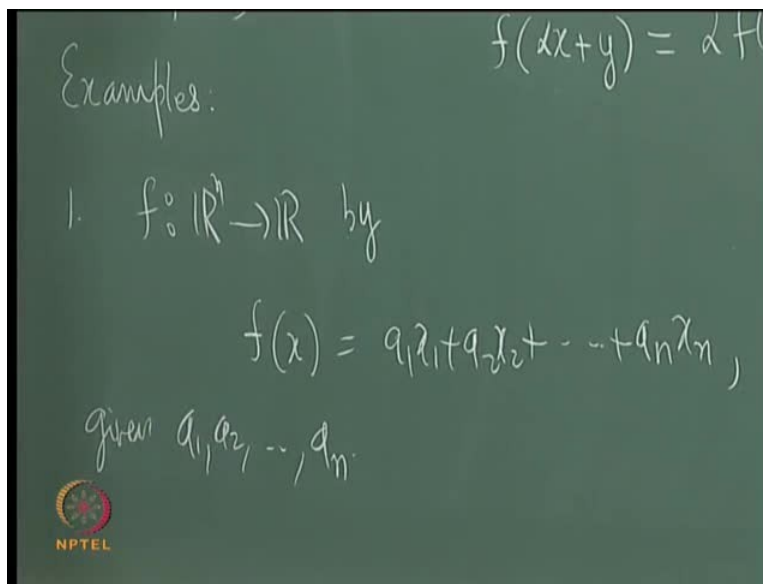 f(αx+y) = α f(
Examples:
1. f: ℝⁿ → ℝ by
f(x) = a₁x₁+a₂x₂+ - - - +aₙxₙ,
given a₁, a₂, - -, aₙ.
NPTEL